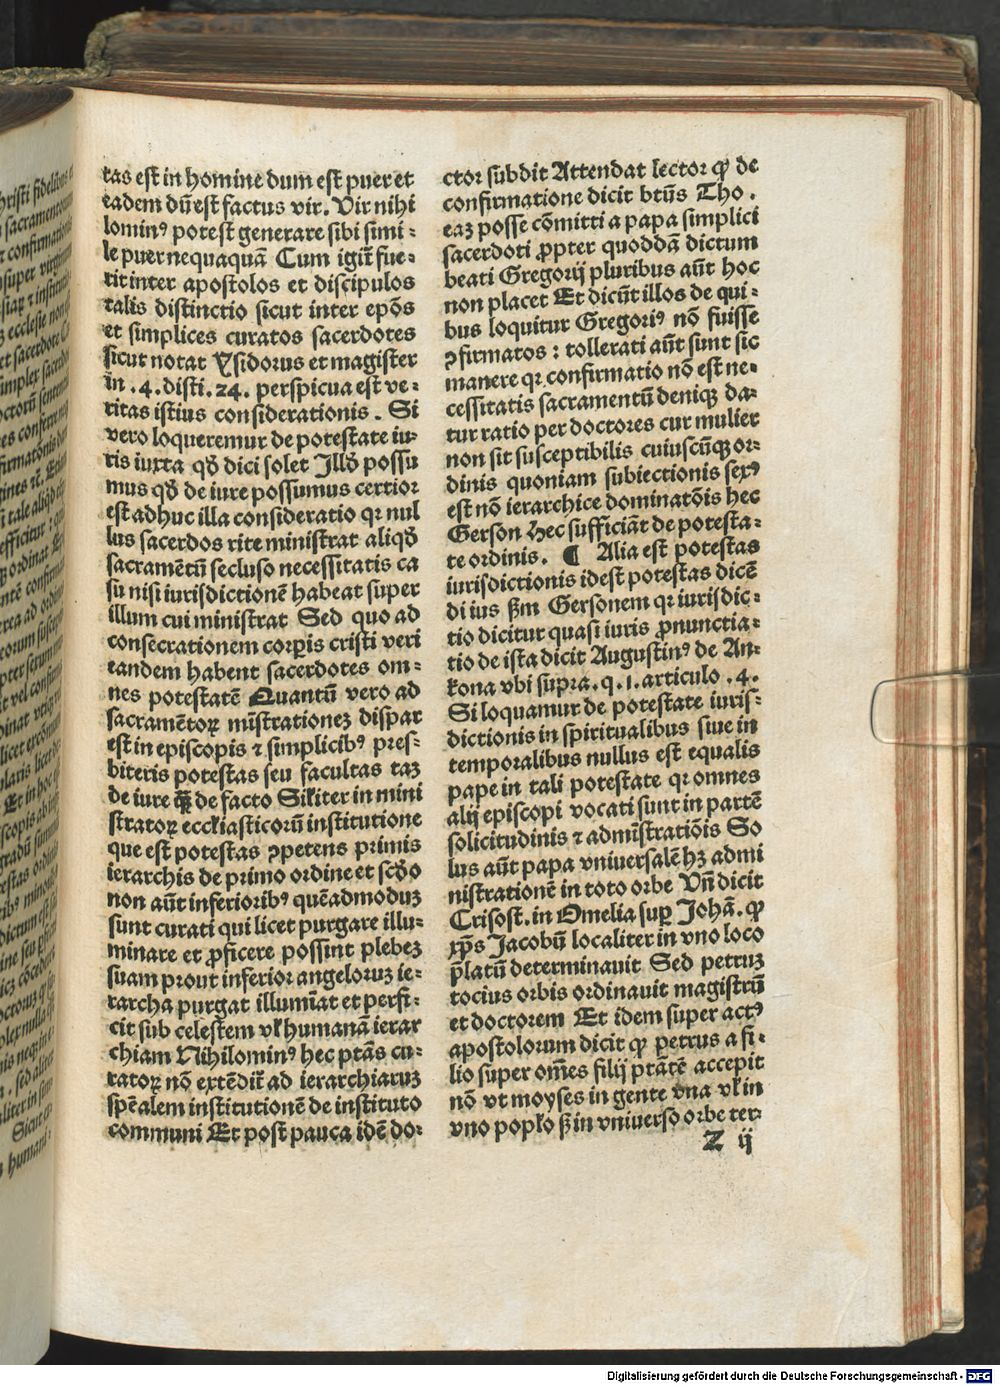 tas est in homine dum est puer et
eadem dū est factus vir. Vir nihi
lominꝰ potest generare sibi simi⸗
le puer nequaquā Cum igit̄ fue⸗
rit inter apostolos et discipulos
talis distinctio sicut inter ep̄os
et simplices curatos sacerdotes
sicut notat Ysidorus et magister
in .4. disti. 24. perspicua est ve⸗
ritas istius considerationis. Si
vero loqueremur de potestate iu⸗
ris iuxta qđ dici solet Illđ possu
mus qđ de iure possumus certior
est adhuc illa consideratio qꝛ nul
lus sacerdos rite ministrat aliqđ
sacramētū secluso necessitatis ca
su nisi iurisdictionē habeat super
illum cui ministrat Sed quo ad
consecrationem corꝑis cristi veri
eandem habent sacerdotes om⸗
nes potestatē Quantū vero ad
sacramētoꝝ mīstrationeꝫ dispar
est in episcopis ⁊ simplicibꝰ pres⸗
biteris potestas seu facultas taꝫ
de iure qᷓꝫ de facto Sił'iter in mini
stratoꝝ eccłiasticorū institutione
que est potestas ꝯpetens primis
ierarchis de primo ordine et scđo
non aūt inferioribꝰ quēadmoduꝫ
sunt curati qui licet purgare illu⸗
minare et ꝑficere possint plebeꝫ
suam prout inferior angeloruꝫ ie⸗
rarcha purgat illumīat et perfi⸗
cit sub celestem vł humanā ierar
chiam Nihilominꝰ hec ptās cu⸗
ratoꝝ nō extēdit̄ ad ierarchiaruꝫ
spēalem institutionē de instituto
communi Et post pauca idē do⸗
ctor subdit Attendat lector ꝙ de
confirmatione dicit btūs Tho.
eaꝫ posse cōmitti a papa simplici
sacerdoti ꝓpter quoddā dictum
beati Gregorij pluribus aūt hoc
non placet Et dicūt illos de qui⸗
bus loquitur Gregoriꝰ nō fuisse
ꝯfirmatos : tollerati aūt sunt sic
manere qꝛ confirmatio nō est ne⸗
cessitatis sacramentū deniqꝫ da⸗
tur ratio per doctores cur mulier
non sit susceptibilis cuiuscūqꝫ or⸗
dinis quoniam subiectionis sexꝰ
est nō ierarchice dominatōis hec
Gerson Hec sufficiāt de potesta⸗
te ordinis. ¶ Alia est potestas
iurisdictionis idest potestas dicē
di ius ẜm Gersonem qꝛ iurisdic⸗
tio dicitur quasi iuris ꝓnunctia⸗
tio de ista dicit Augustinꝰ de An⸗
kona vbi supra. q. 1. articulo .4.
Si loquamur de potestate iuris⸗
dictionis in spiritualibus siue in
temporalibus nullus est equalis
pape in tali potestate qꝛ omnes
alij episcopi vocati sunt in partē
solicitudinis ⁊ admīstratiōis So
lus aūt papa vniuersalē hꝫ admi
nistrationē in toto orbe Vn̄ dicit
Crisost. in Omelia suꝑ Johā. ꝙ
xp̄s Jacobū localiter in vno loco
p̄latū determinauit Sed petruꝫ
tocius orbis ordinauit magistrū
et doctorem Et idem super actꝰ
apostolorum dicit ꝙ petrus a fi⸗
lio super om̄es filij ptātē accepit
nō vt moyses in gente vna vł in
vno popło ß in vniuerso orbe ter⸗
Z ij
Digitalisierung gefördert durch die Deutsche Forschungsgemeinschaft - DFG